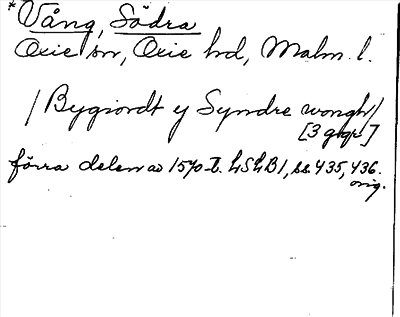 *Vång, Södra
Oxie sn, Oxie hd, Malm. l.
/Bygiordt y Syndre wongh/
[3 ggr]
förra delen av 1570-t. LSLB1, ss 435, 436.
orig.